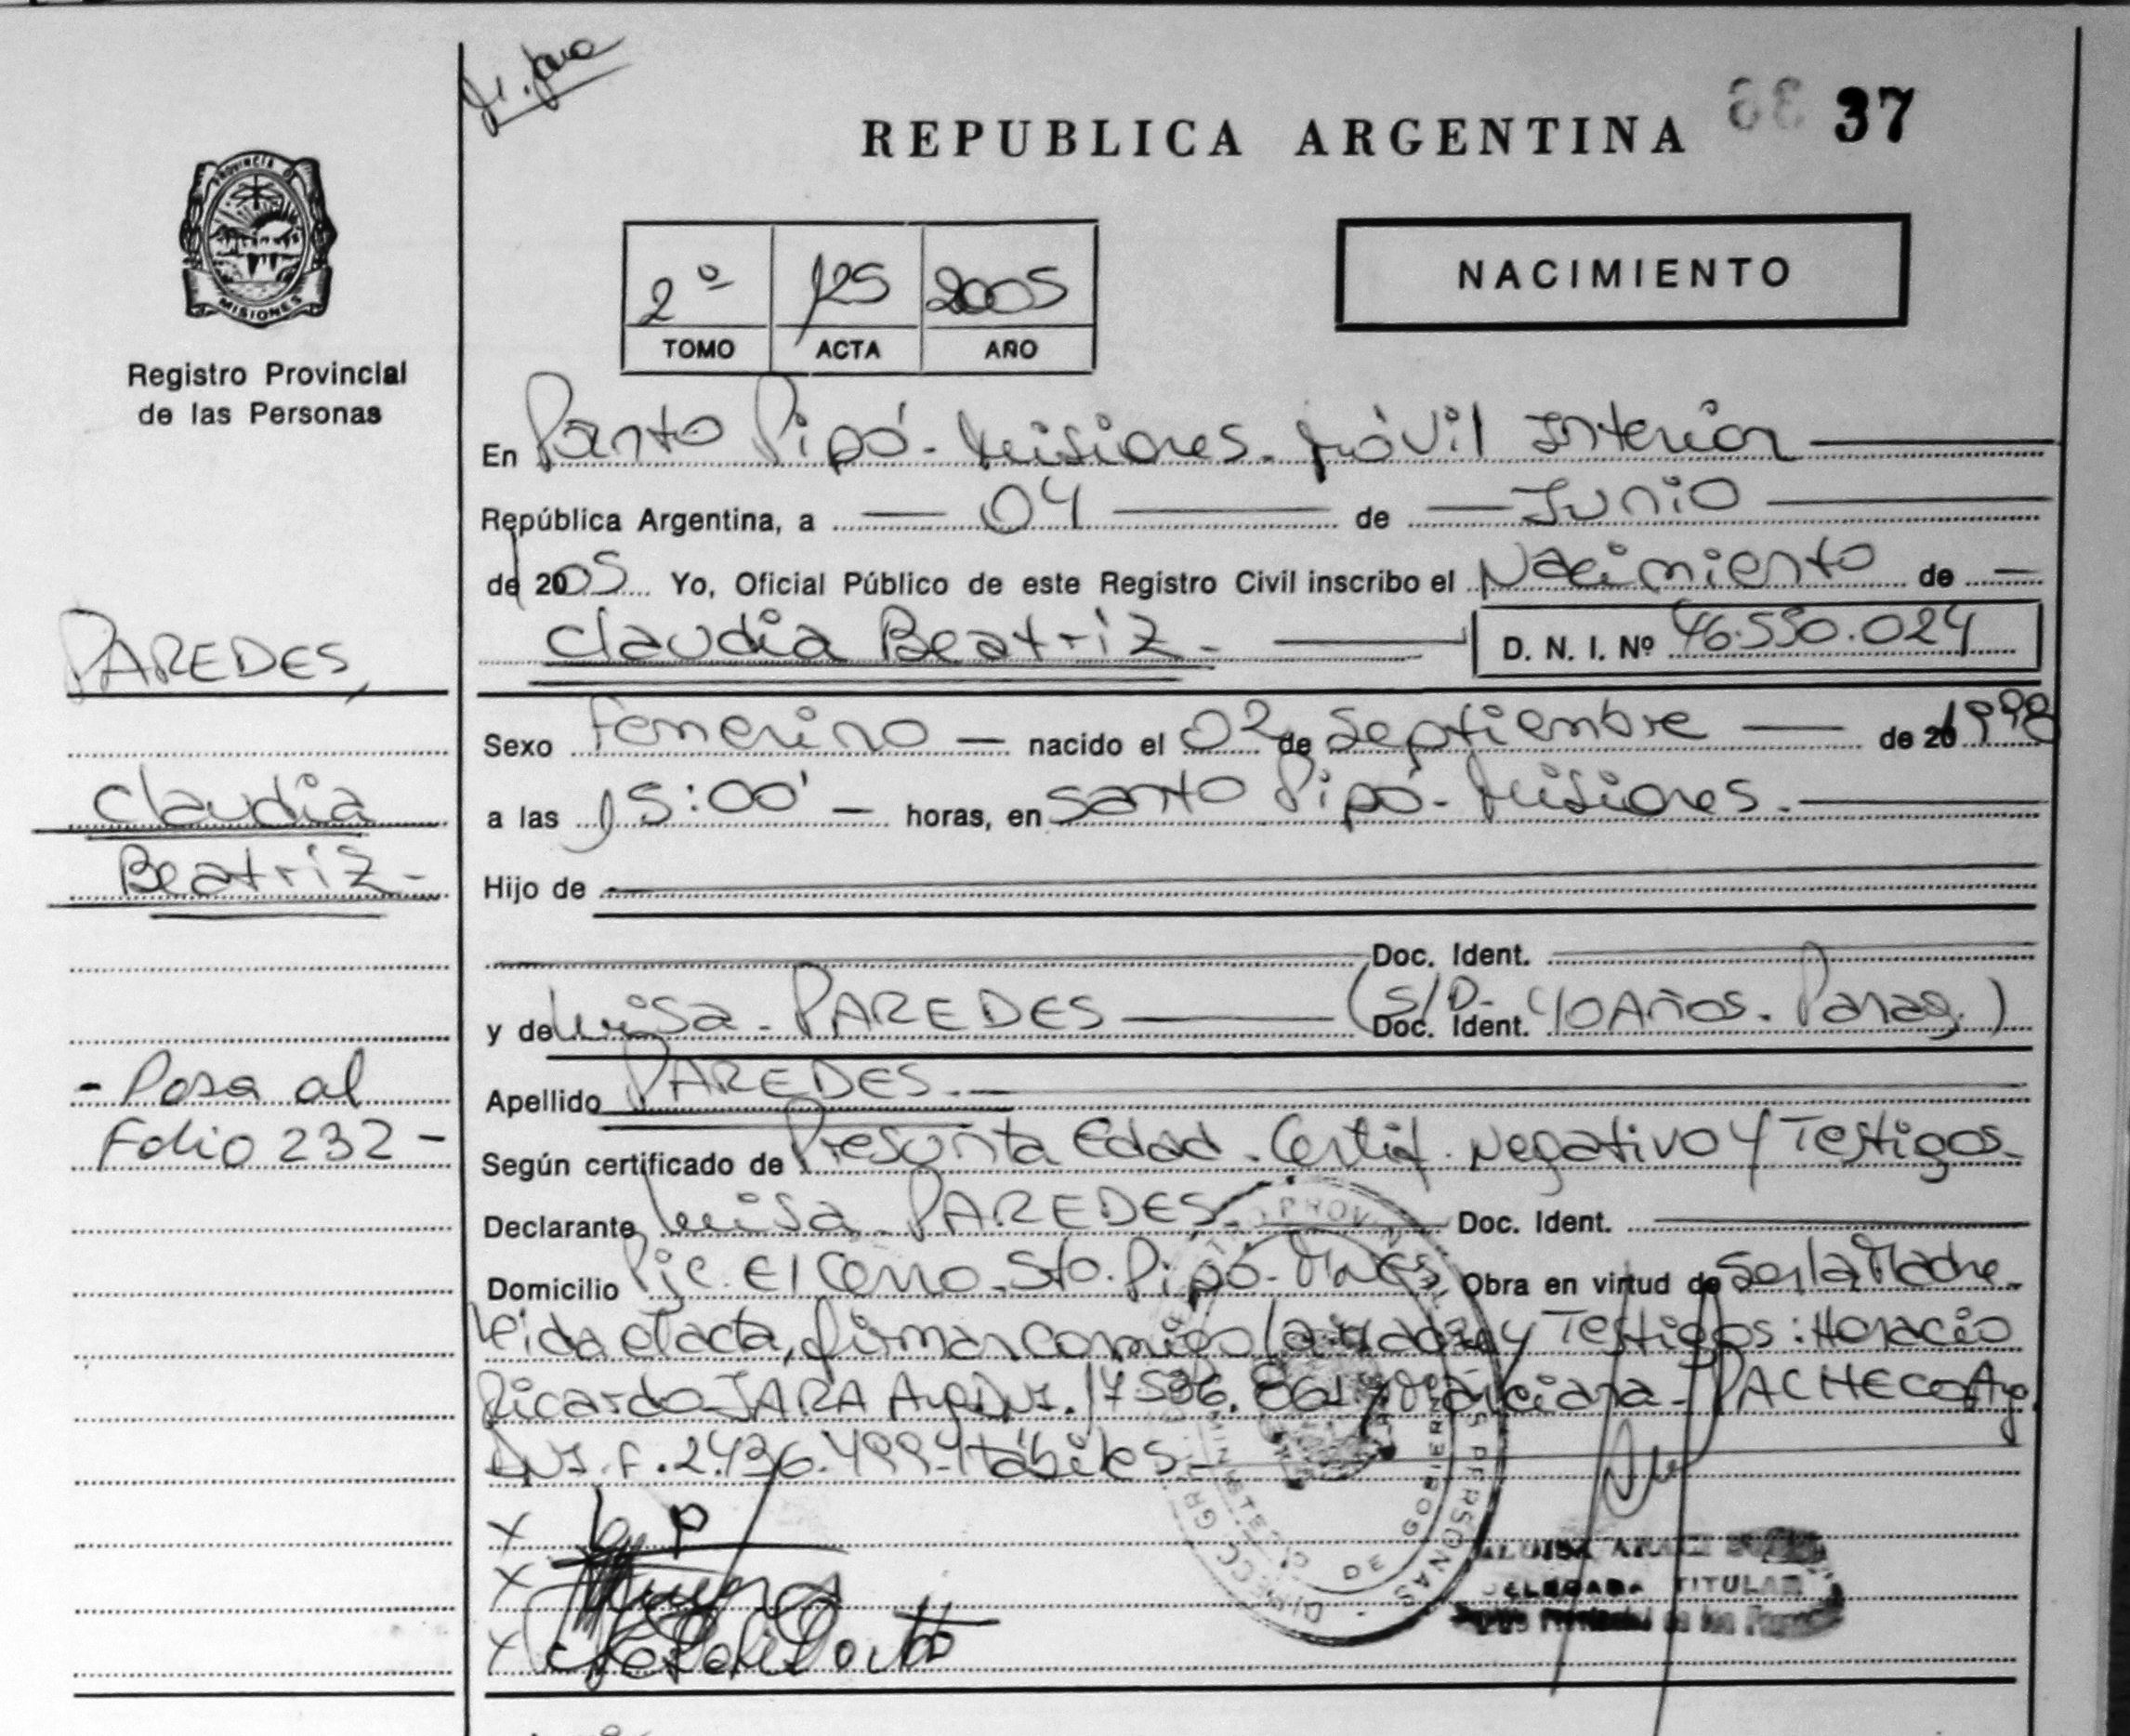 REPUBLICA ARGENTINA 36 37
PROVINCIA DE
MISIONES
Registro Provincial
de las Personas
2º 125 2005
TOMO ACTA AÑO
NACIMIENTO
En Santo Pipó - Misiones - Móvil Interior
República Argentina, a 04 de Junio
de 2005 Yo, Oficial Público de este Registro Civil inscribo el Nacimiento de
Claudia Beatriz.- D. N. I. Nº 46.550.024
PAREDES,
Claudia
Beatriz.-
Sexo Femenino nacido el 02 de Septiembre de 20 1998
a las 15:00' horas, en Santo Pipó - Misiones.-
Hijo de
Doc. Ident.
y de Luisa - PAREDES (S/D- Doc. Ident. 40 Años. Parag.)
Apellido PAREDES.-
- Pasa al
Folio 232 -
Según certificado de Presunta Edad - Certif. Negativo y Testigos.
Declarante Luisa - PAREDES. Doc. Ident.
Domicilio Pje. El Cerro - Sto. Pipó - Mnes. Obra en virtud de Ser la Madre.
Leida el acta, firman conmigo la Madre y Testigos: Horacio
Ricardo JARA Arg. DNI. 17.586.861 y Marciana - PACHECO Arg.
DNI. F. 2.436.499 - Hábiles.-
X L P
X
X
DELEGADA TITULAR